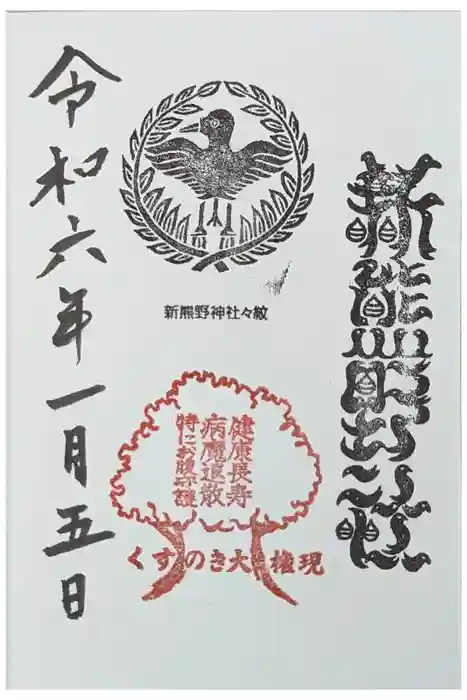 新熊野神社
新熊野神社々紋
健康長寿
病魔退散
特にお腹守護
くすのき大権現
令和六年一月五日